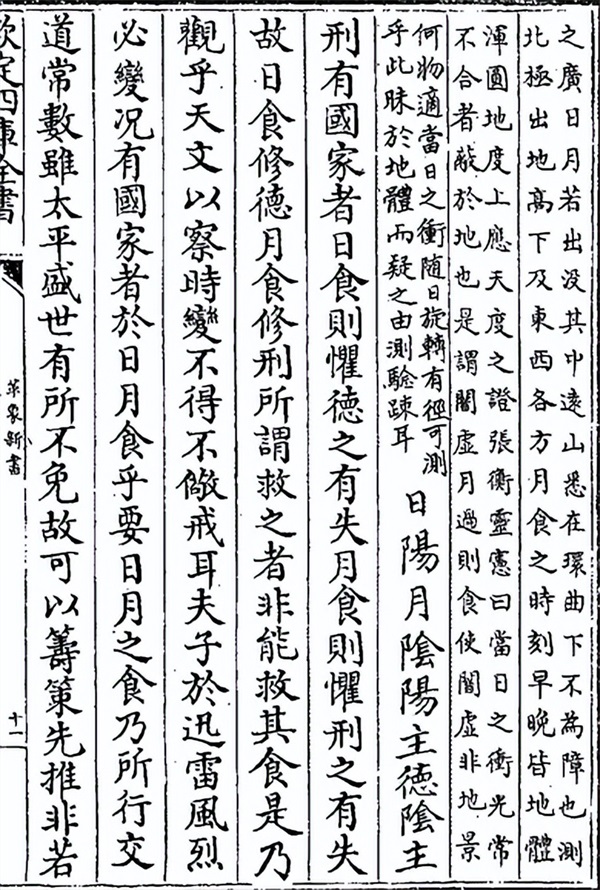 之廣日月若出没其中遠山悉在環曲下不為障也測
北極出地高下及東西各方月食之時刻早晚皆地體
渾圓地度上應天度之證張衡靈憲曰當日之衝光常
不合者蔽於地也是謂闇虚月過則食使闇虚非地景
何物適當日之衝隨日旋轉有徑可測
乎此昧於地體而疑之由測驗疎耳
日陽月陰陽主德陰主
刑有國家者日食則懼德之有失月食則懼刑之有失
故日食修德月食修刑所謂救之者非能救其食是乃
觀乎天文以察時變不得不儆戒耳夫子於迅雷風烈
必變况有國家者於日月食乎要日月之食乃所行交
道常數雖太平盛世有所不免故可以籌策先推非若
欽定四庫全書
革象新書
十一